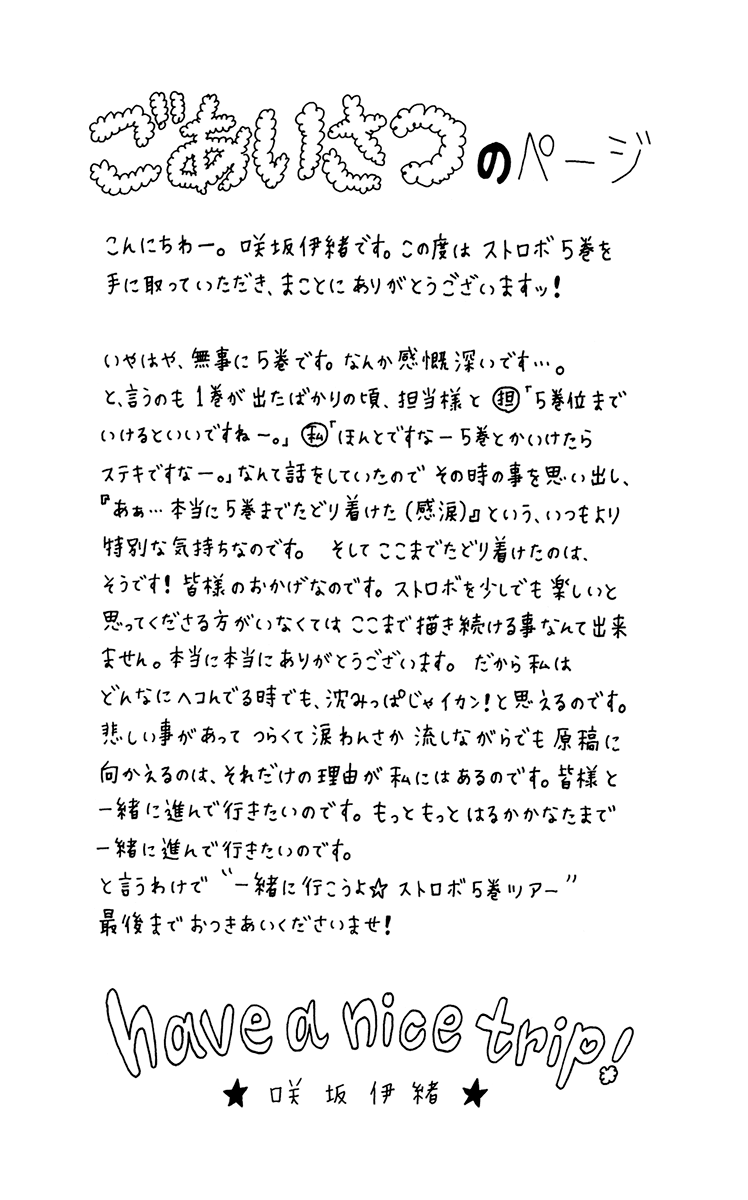 ごあいさつのページ
こんにちわー。咲坂伊緒です。この度は ストロボ5巻を
手に取っていただき、まことに ありがとうございますッ!
いやはや、無事に5巻です。なんか感慨深いです…。
と、言うのも 1巻が出たばかりの頃、担当様と 担「5巻位まで
いけるといいですね〜。」 私「ほんとですなー5巻とかいけたら
ステキですなー。」なんて話をしていたので その時の事を思い出し、
『あぁ…本当に5巻までたどり着けた(感涙)』という、いつもより
特別な気持ちなのです。 そして ここまでたどり着けたのは、
そうです! 皆様のおかげなのです。ストロボを少しでも楽しいと
思ってくださる方がいなくては ここまで描き続ける事なんて出来
ません。本当に本当にありがとうございます。 だから私は
どんなにヘコんでる時でも、沈みっぱじゃイカン!と思えるのです。
悲しい事があって つらくて涙わんさか 流しながらでも原稿に
向かえるのは、それだけの理由が私にはあるのです。皆様と
一緒に進んで行きたいのです。もっともっとはるかかなたまで
一緒に進んで行きたいのです。
と言うわけで “一緒に行こうよ☆ストロボ5巻ツアー”
最後までおつきあいくださいませ!
have a nice trip!
★ 咲坂伊緒 ★